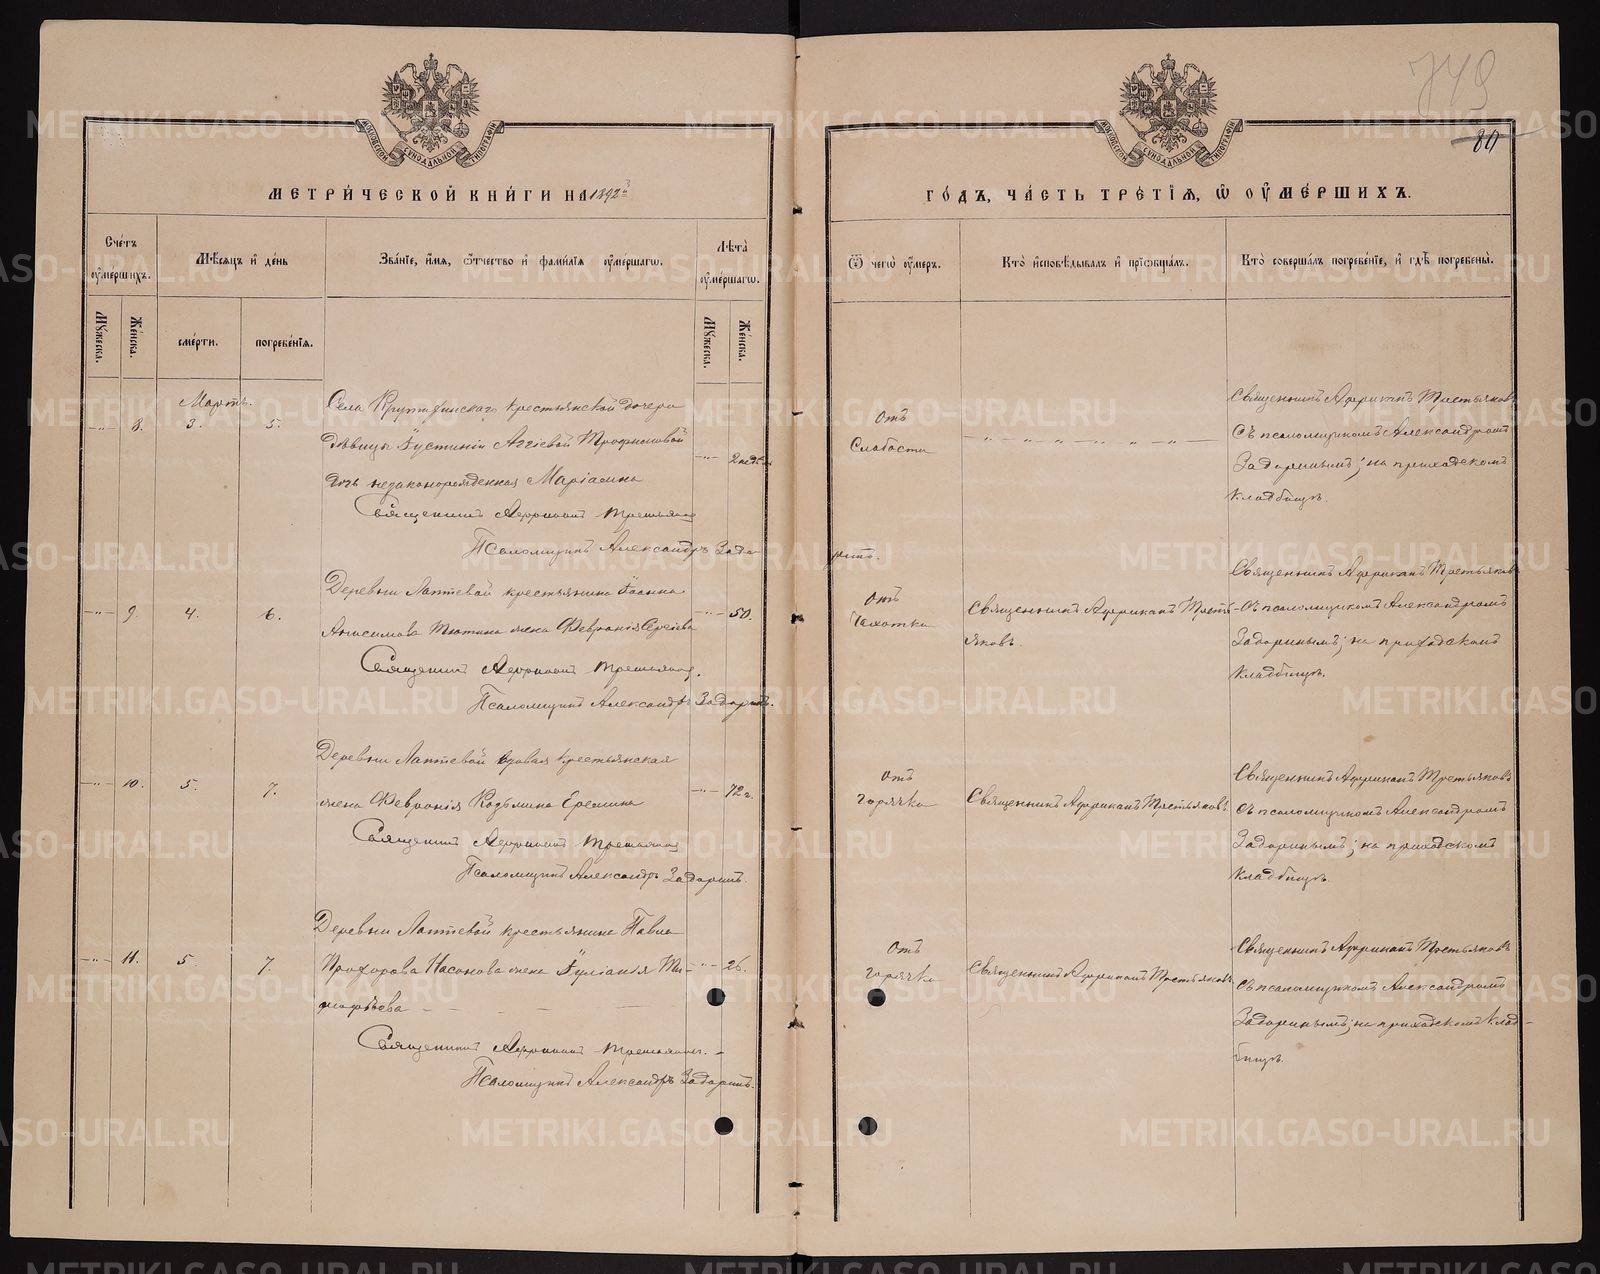 749
80
МОСКОВСКОЙ СѴНОДАЛЬНОЙ ТИПОГРАФІИ
МОСКОВСКОЙ СѴНОДАЛЬНОЙ ТИПОГРАФІИ
МЕТРИ́ЧЕСКОЙ КНИ́ГИ НА 1892й
ГО́ДЪ, ЧА́СТЬ ТРЕ́ТІѦ, Ѽ ОУ҆МЕ́РШИХЪ.
Сче́тъ оу҆ме́ршихъ.
Мѣ́сяцъ и҆ де́нь
Зва́нїе, и҆́мѧ, ѻ҆́тчество и҆ фами́лїѧ оу҆ме́ршагѡ.
Лѣ́та оу҆ме́ршагѡ.
Ѿ чегѡ̀ оу҆́меръ.
Кто̀ и҆сповѣ́дывалъ и҆ прїѡбща́лъ.
Кто̀ соверша́лъ погребе́нїе, и҆ гдѣ̀ погребены̀.
Мꙋ́жеска.
Же́нска.
сме́рти.
погребе́нїѧ.
Мꙋ́жеска.
Же́нска.
Мартъ.
8. 3. 5.
Села Крутихинскаго крестьянской дочери
дѣвицы Іустиніи Аггіевой Трофимовой
дочь незаконорожденная Маріамна
2 нед.
Священникъ Африканъ Третьяковъ
Псаломщикъ Александръ Задоринъ.
Отъ
Слабости
Священникъ Африканъ Третьяковъ
съ псаломщикомъ Александромъ
Задоринымъ; на приходскомъ
кладбищѣ.
9. 4. 6.
Деревни Лаптевой крестьянина Іоанна
Анисимова Тютина жена Февронія Сергіева
50.
Священникъ Африканъ Третьяковъ.
Псаломщикъ Александръ Задоринъ.
Отъ
Чахотки
Священникъ Африканъ Треть-
яковъ.
Священникъ Африканъ Третьяковъ
съ псаломщикомъ Александромъ
Задоринымъ; на приходскомъ
кладбищѣ.
10. 5. 7.
Деревни Лаптевой вдовая крестьянская
жена Февронія Козьмина Еремина
72 г.
Священникъ Африканъ Третьяковъ
Псаломщикъ Александръ Задоринъ.
Отъ
горячки
Священникъ Африканъ Третьяковъ.
Священникъ Африканъ Третьяковъ
съ псаломщикомъ Александромъ
Задоринымъ; на приходскомъ
кладбищѣ.
11. 5. 7.
Деревни Лаптевой крестьянина Павла
Прохорова Насонова жена Іуліанія Ти-
мофѣева
26.
Священникъ Африканъ Третьяковъ.
Псаломщикъ Александръ Задоринъ.
Отъ
горячки
Священникъ Африканъ Третьяковъ.
Священникъ Африканъ Третьяковъ
съ псаломщикомъ Александромъ
Задоринымъ; на приходскомъ клад-
бищѣ.
METRIKI.GASO-URAL.RU